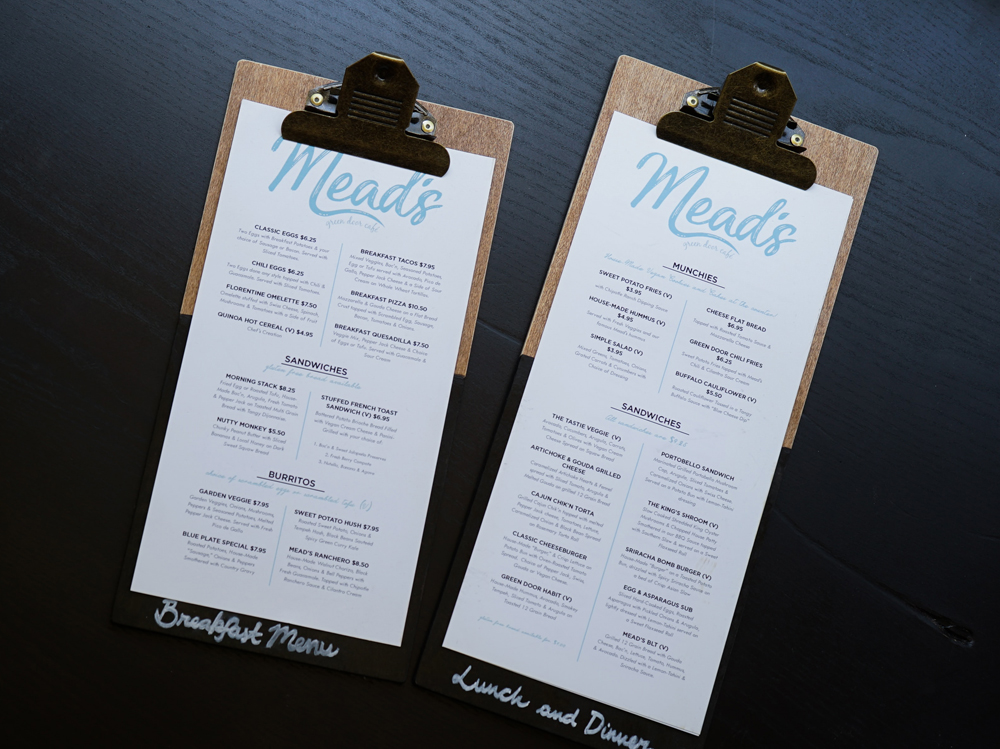 Mead's
green door cafe
CLASSIC EGGS $6.25
Two Eggs with Breakfast Potatoes & your
choice of Sausage or Bacon. Served with
Sliced Tomatoes.
CHILI EGGS $6.25
Two Eggs done any style topped with Chili &
Guacamole, Served with Sliced Tomatoes.
FLORENTINE OMELETTE $7.50
Omelette stuffed with Swiss Cheese, Spinach,
Mushrooms & Tomatoes with a Side of Fruit
QUINOA HOT CEREAL (V) $4.95
Chef's Creation
BREAKFAST TACOS $7.95
Mixed Veggies, Bac'n, Seasoned Potatoes,
Egg or Tofu served with Avocado, Pico de
Gallo, Pepper Jack Cheese & a Side of Sour
Cream on Whole Wheat Tortillas.
BREAKFAST PIZZA $10.50
Mozzarella & Gouda Cheese on a Flat Bread
Crust topped with Scrambled Egg, Sausage,
Bacon, Tomatoes & Onions
BREAKFAST QUESADILLA $7.50
Veggie Mix, Pepper Jack Cheese & Choice
of Eggs or Tofu, Served with Guacamole &
Sour Cream
SANDWICHES
gluten free bread available
MORNING STACK $8.25
Fried Egg or Roasted Tofu, House-
Made Bac'n, Arugula, Fresh Tomato
& Pepper Jack on Toasted Multi Grain
Bread with Tangy Dijonnaise
NUTTY MONKEY $5.50
Chunky Peanut Butter with Sliced
Bananas & Local Honey on Dark
Sweet Square Bread
STUFFED FRENCH TOAST
SANDWICH (V) $6.95
Battered Potato Brioche Bread Filled
with Vegan Cream Cheese & Pecans,
Grilled with your choice of:
1. Bac'n & Sweet Jalapeño Preserves
2. Fresh Berry Compote
3. Nutella, Banana & Agave
BURRITOS
choice of scrambled eggs or scrambled tofu (v)
GARDEN VEGGIE $7.95
Garden Veggies, Onions, Mushrooms,
Peppers & Seasoned Potatoes, Melted
Pepper Jack Cheese, Served with Fresh
Pico de Gallo
BLUE PLATE SPECIAL $7.95
Roasted Potatoes, House-Made
"Sausage," Onions & Peppers
Smothered with Country Gravy
SWEET POTATO HUSH $7.95
Roasted Sweet Potato, Onions &
Tempeh Hash, Black Beans Sautéed
Spicy Green Curry Kale
MEAD'S RANCHERO $8.50
House-Made Walnut Chorizo, Black
Beans, Onions & Bell Peppers with
Fresh Guacamole, Topped with Chipotle
Ranchero Sauce & Cilantro Cream
Breakfast Menu
Mead's
green door cafe
MUNCHIES
SWEET POTATO FRIES (V)
$3.95
with Chipotle Ranch Dipping Sauce
HOUSE-MADE HUMMUS (V)
$4.95
Served with Fresh Veggies and our
famous Mead's Lavosh
SIMPLE SALAD (V)
$3.95
Mixed Greens, Tomatoes, Onions,
Grated Carrots & Cucumbers with
Choice of Dressing
CHEESE FLAT BREAD
$6.95
Topped with Roasted Tomato Sauce &
Mozzarella Cheese
GREEN DOOR CHILI FRIES
$6.25
Sweet Potato Fries topped with Mead's
Chili & Cilantro Sour Cream
BUFFALO CAULIFLOWER (V)
$5.50
Roasted Cauliflower Tossed in a Tangy
Buffalo Sauce with "Blue Cheese Dip"
SANDWICHES
All sandwiches are
THE TASTIE VEGGIE (V)
Avocado, Cucumbers, Arugula, Carrots,
Tomatoes & Olives with Vegan Cream
Cheese Spread on Square Bread
ARTICHOKE & GOUDA GRILLED
CHEESE
Caramelized Artichoke Hearts & Pepper
Spread with Sliced Tomato, Arugula &
Melted Gouda on grilled 12 Grain Bread
CAJUN CHIK'N TORTA
Grilled Cajun Chik'n Topped with melted
Pepper Jack Cheese, Tomatoes, Lettuce,
Caramelized Onion & Black Bean Spread
CLASSIC CHEESEBURGER
House-Made "Burger" & Crisp Lettuce on
Potato Bun with Oven-Roasted Tomatoes,
Choice of Pepper Jack, Swiss,
Gouda or Vegan Cheese.
GREEN DOOR HABIT (V)
House-Made Hummus, Avocado, Smokey
Tempeh, Sliced Tomato & Arugula on
Toasted 12 Grain Bread
PORTOBELLO SANDWICH
Marinated Grilled Portobello Mushroom
Cap, Arugula, Sliced Tomatoes &
Caramelized Onions with Swiss Cheese,
Served on a Potato Bun with Lemon Tahini
Spread
THE KING'S SHROOM (V)
Slow Cooked Shredded King Oyster
Mushrooms & Chopped Onion Patty
Smothered in our BBQ Sauce topped
with Southern Slaw & served on a Sweet
Flaxseed Roll
SRIRACHA BOMB BURGER (V)
House-Made "Burger" on a Toasted Potato
Bun, drizzled with Spicy Sriracha Sauce on
a bed of Crisp Asian Slaw
EGG & ASPARAGUS SUB
Sliced Hard Cooked Eggs, Roasted
Asparagus with Pickled Onions & Arugula,
lightly dressed with Lemon Tahini served on
a Sweet Flaxseed Roll
MEAD'S BLT (V)
Grilled 12 Grain Bread with Gouda
Cheese, Bac'n, Lettuce, Tomato, Hummus,
& Avocado, Drizzled with a Lemon Tahini &
Sriracha Sauce
Lunch and Dinner